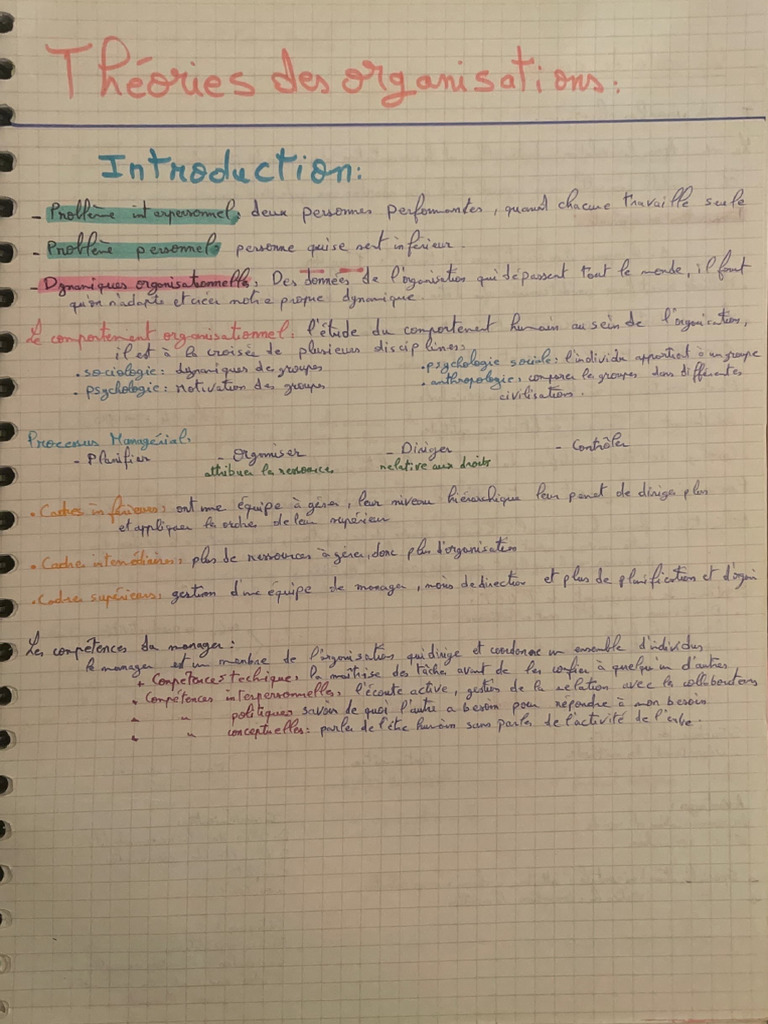 Théories des organisations:
Introduction:
- Problème interpersonnel: deux personnes performantes, quand chacune travaille seule
- Problème personnel: personne qui se sent inférieur.
- Dynamiques organisationnelles: Des données de l'organisation qui dépassent tout le monde, il faut
qu'on s'adapte et créer notre propre dynamique.
Le comportement organisationnel: l'étude du comportement humain au sein de l'organisation,
il est à la croisée de plusieurs disciplines:
• sociologie: dynamiques de groupes
• psychologie sociale: l'individu appartient à un groupe
• psychologie: motivation des groupes
• anthropologie: comparer les groupes dans différentes
civilisations.
Processus Managérial:
- Planifier - Organiser - Diriger - Contrôler
attribuer les ressources relative aux droits
• Cadres inférieurs: ont une équipe à gérer, leur niveau hiérarchique leur permet de diriger plus
et appliquer les ordres de leur supérieur
• Cadres intermédiaires: plus de ressources à gérer, donc plus d'organisation
• Cadres supérieurs: gestion d'une équipe de manager, moins de direction et plus de planification et d'
Les compétences du manager:
le manager est un membre de l'organisation qui dirige et coordonne un ensemble d'individus
• Compétences technique: la maîtrise des tâches avant de les confier à quelqu'un d'autres
• Compétences interpersonnelles: l'écoute active, gestion de la relation avec les collaborateurs
" " politiques savoir de quoi l'autre a besoin pour répondre à mon besoin
" " conceptuelles: parler de l'être humain sans parler de l'activité de l'